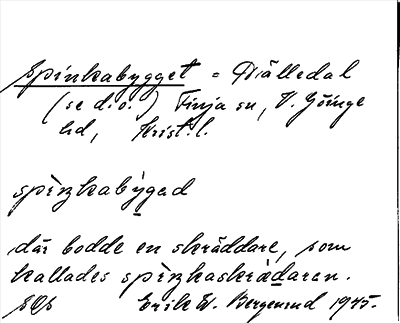 Spinkabygget = Diälledal
(se d.o.) Finja sn, V. Göinge
hd, Krist. l.
spìŋkabỳgəd
där bodde en skräddare, som
kallades spìŋkaskrädaren.
Erik W. Bergsrud 1945.